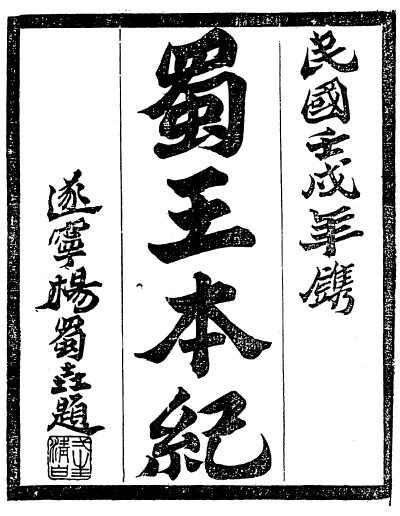 民國壬戌年鐫
蜀王本紀
遂寧楊蜀尭題